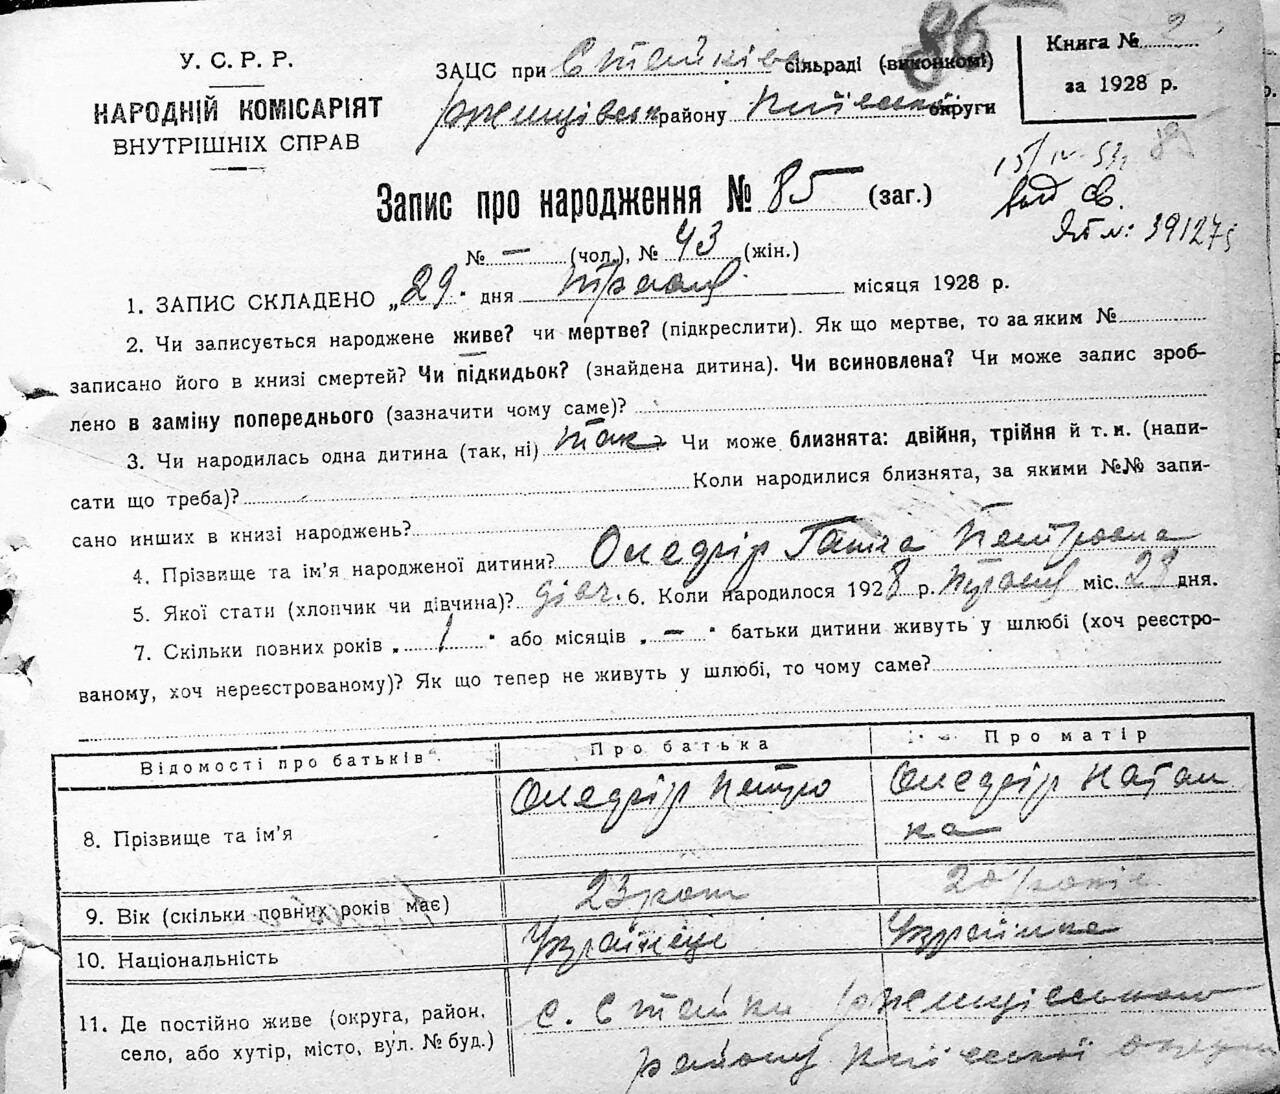 У. С. Р. Р.
НАРОДНІЙ КОМІСАРІЯТ
ВНУТРІШНІХ СПРАВ
86
ЗАЦС при Стайків. сільраді (виконкомі)
Ржищівськ району Київської округи
Книга № 2
за 1928 р.
15/IV-53р.
вид. св.
ЯТ №: 391275
Запис про народження № 85 (заг.)
№ — (чол.), № 43 (жін.)
1. ЗАПИС СКЛАДЕНО „29" дня травня місяця 1928 р.
2. Чи записується народжене живе? чи мертве? (підкреслити). Як що мертве, то за яким №
записано його в книзі смертей? Чи підкидьок? (знайдена дитина). Чи всиновлена? Чи може запис зроб-
лено в заміну попереднього (зазначити чому саме)?
3. Чи народилась одна дитина (так, ні) так Чи може близнята: двійня, трійня й т. и. (напи-
сати що треба)? Коли народилися близнята, за якими №№ запи-
сано инших в книзі народжень?
4. Прізвище та ім'я народженої дитини? Оледзір Ганна Петровна
5. Якої стати (хлопчик чи дівчина)? дівч. 6. Коли народилося 1928 р. травня міс. 29 дня.
7. Скільки повних років „ 1 " або місяців „ — " батьки дитини живуть у шлюбі (хоч реєстро-
ваному, хоч нереєстрованому)? Як що тепер не живуть у шлюбі, то чому саме?
Відомості про батьків
Про батька
Про матір
8. Прізвище та ім'я
Оледзір Петро
Оледзір Натал
ка
9. Вік (скільки повних років має)
23 рок
20 років
10. Національність
Українець
Українка
11. Де постійно живе (округа, район,
село, або хутір, місто, вул. № буд.)
с. Стайки Ржищівського
району Київської округи